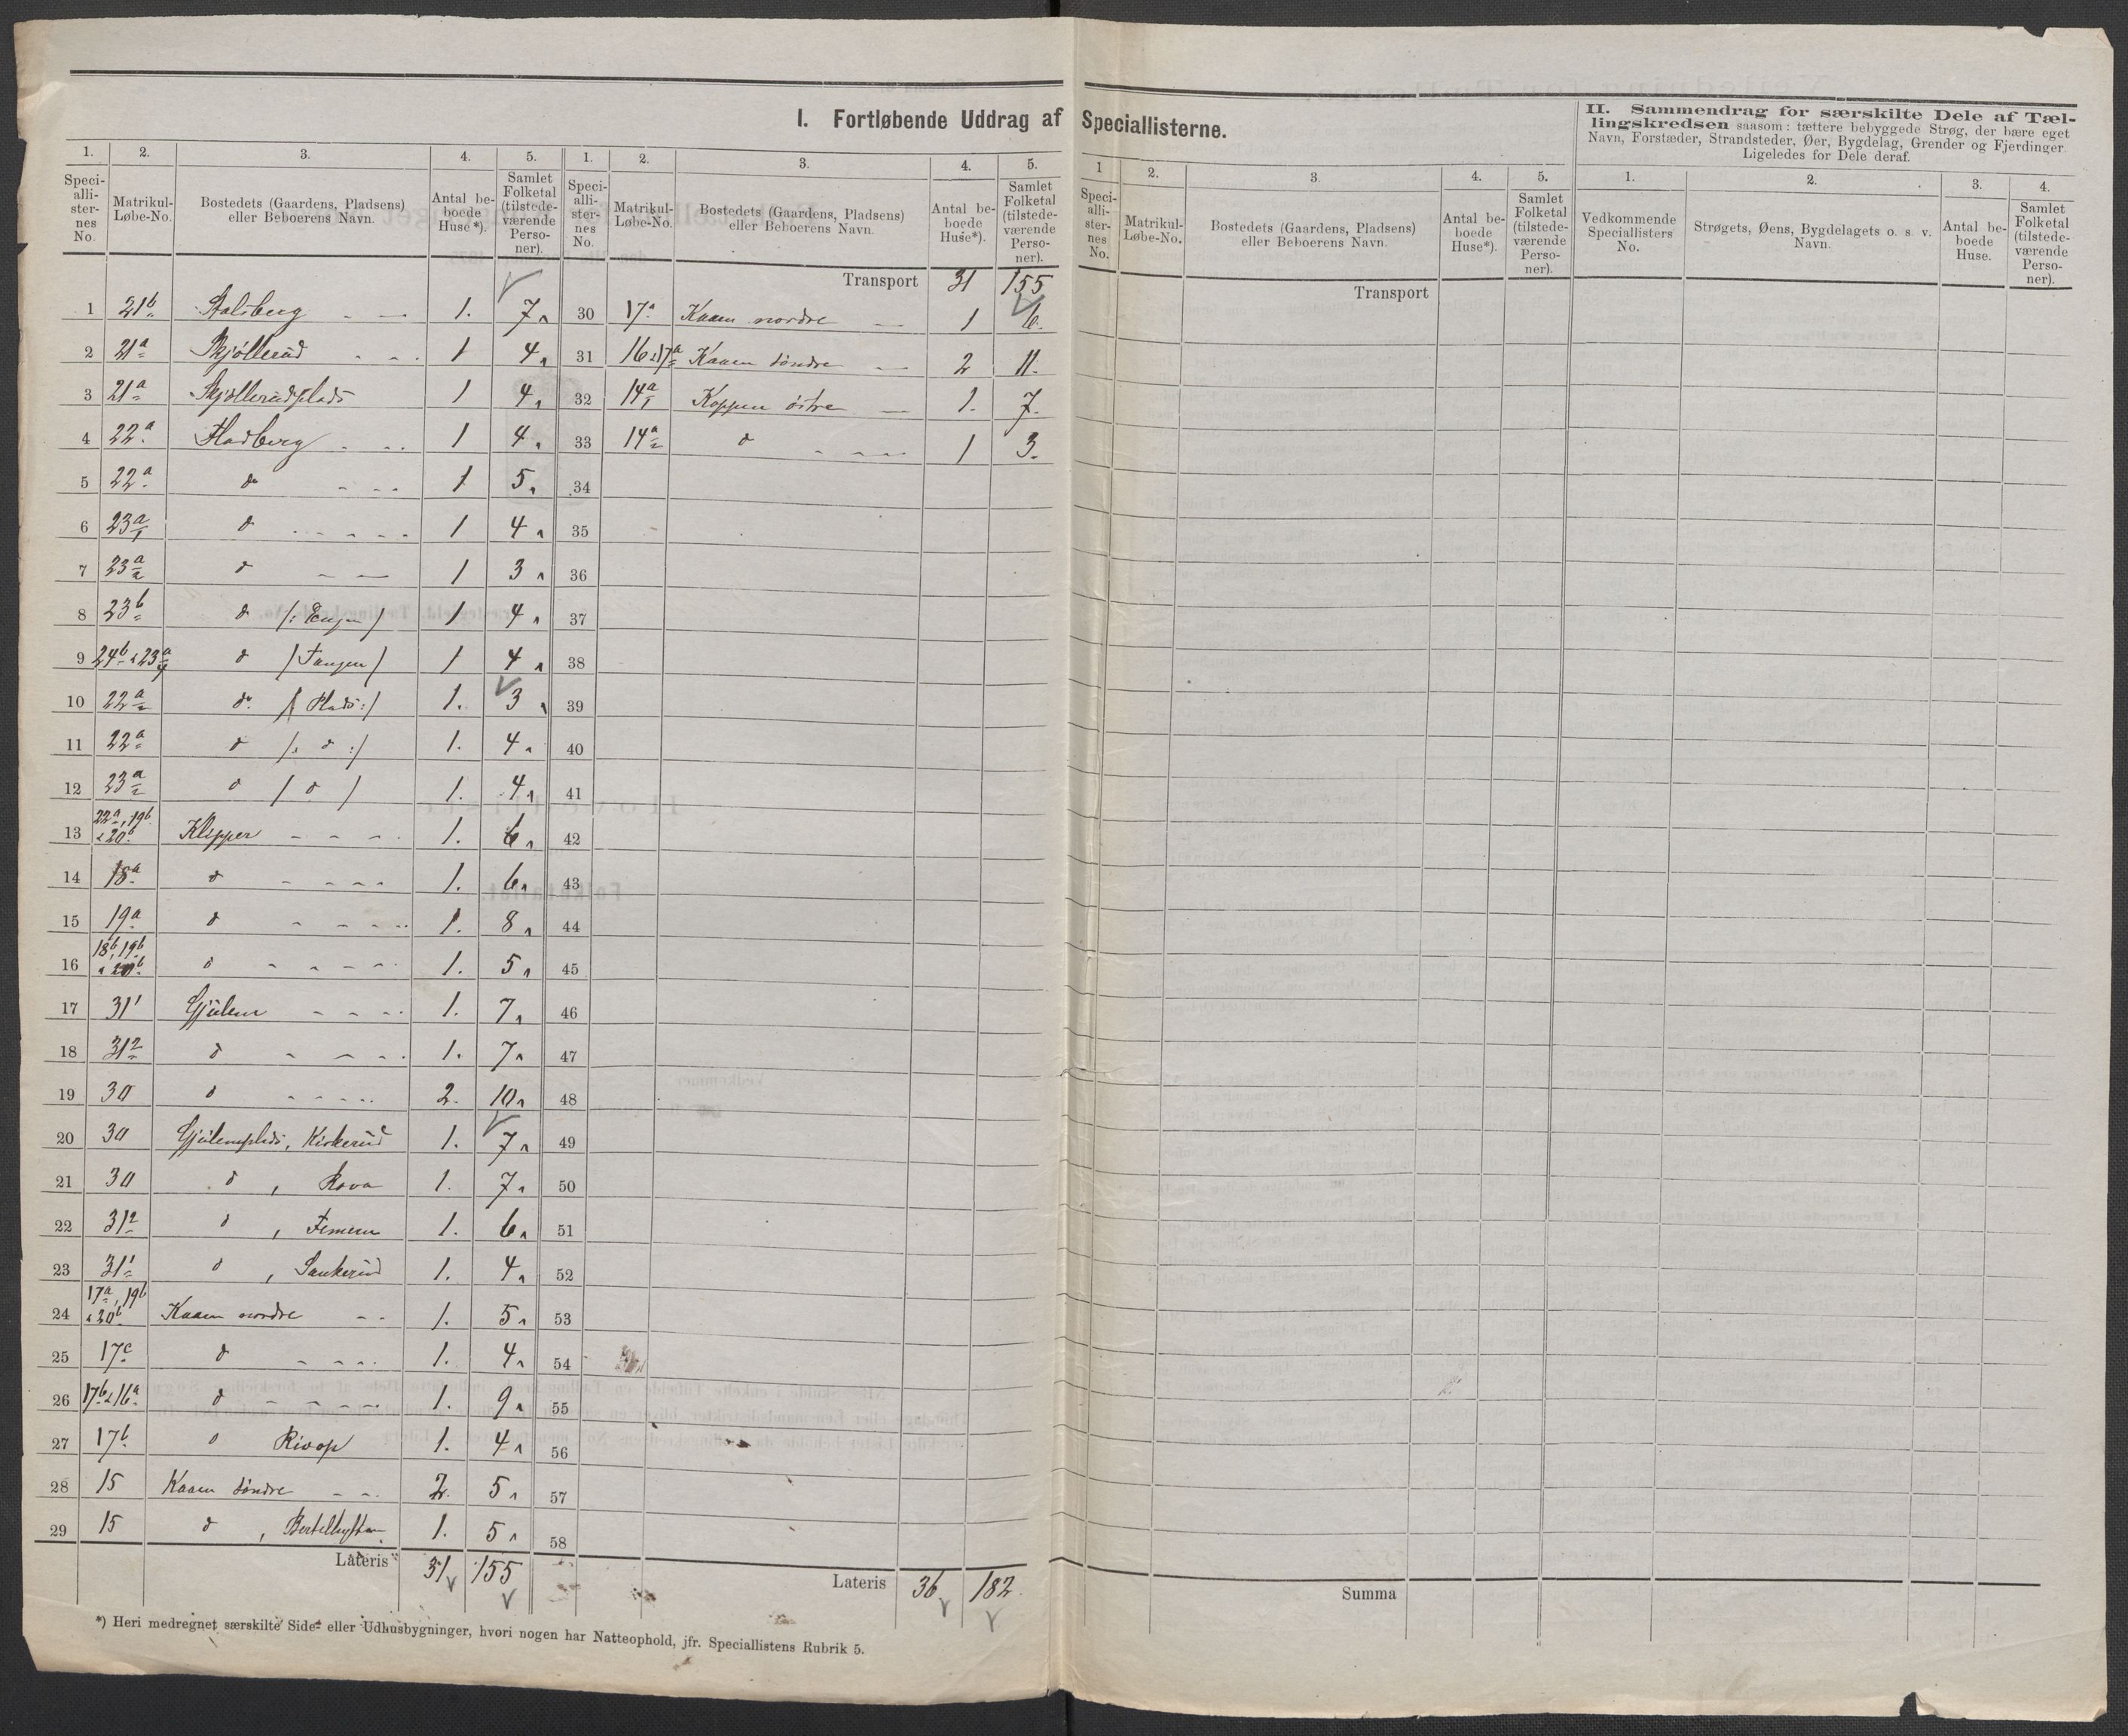 I. Fortløbende Uddrag af Speciallisterne.
1. 2. 3. 4. 5.
Speciallisternes No. Matrikul-Løbe-No. Bostedets (Gaardens, Pladsens) eller Beboerens Navn. Antal beboede Huse*). Samlet Folketal (tilstedeværende Personer).
1 21b Aalsberg 1. 7
2 21a Skjøllerud 1 4
3 21a Skjøllerudplads 1 4
4 22a Fladberg 1 4
5 22a do 1 5
6 23a1 do 1 4
7 23a2 do 1 3
8 23b do /: Engen / 1 4
9 24b & 23a do / Tangen / 1 4
10 22a do /: Plads :/ 1. 3
11 22a do /: do :/ 1. 4
12 23a2 do / do / 1. 4
13 22a, 19b & 20b Klipper 1. 6
14 18a do 1. 6
15 19a do 1. 8
16 18b, 19b & 20b do 1. 5
17 311 Gjulem 1. 7
18 312 do 1. 7
19 30 do 2. 10
20 30 Gjulemplads, Kirkerud 1. 7
21 30 do, Rova 1. 7
22 312 do, 1. 6
23 311 do, Saukerud 1. 4
24 17a, 19b & 20b Kaaen nordre 1. 5
25 17c do 1. 4
26 17b & 16a do 1. 9
27 17b do Rivop 1. 4
28 15 Kaaen søndre 2. 5
29 15 do, Bertelhytten 1. 5
Lateris 31 155
1. 2. 3. 4. 5.
Speciallisternes No. Matrikul-Løbe-No. Bostedets (Gaardens, Pladsens) eller Beboerens Navn. Antal beboede Huse*). Samlet Folketal (tilstedeværende Personer).
Transport 31 155
30 17a Kaaen nordre 1 6.
31 16 & 17a Kaaen søndre 2 11.
32 14a1 Koppen østre 1. 7.
33 14a2 do 1 3.
34
35
36
37
38
39
40
41
42
43
44
45
46
47
48
49
50
51
52
53
54
55
56
57
58
Lateris 36 182.
*) Heri medregnet særskilte Side- eller Udhusbygninger, hvori nogen har Natteophold, jfr. Speciallistens Rubrik 5.
1 2. 3. 4. 5.
Speciallisternes No. Matrikul-Løbe-No. Bostedets (Gaardens, Pladsens) eller Beboerens Navn. Antal beboede Huse*). Samlet Folketal (tilstedeværende Personer).
Transport
Summa
II. Sammendrag for særskilte Dele af Tællingskredsen saasom: tættere bebyggede Strøg, der bære eget
Navn, Forstæder, Strandsteder, Øer, Bygdelag, Grender og Fjerdinger.
Ligeledes for Dele deraf.
1. 2. 3. 4.
Vedkommende Speciallisters No. Strøgets, Øens, Bygdelagets o. s. v. Navn. Antal beboede Huse. Samlet Folketal (tilstedeværende Personer).